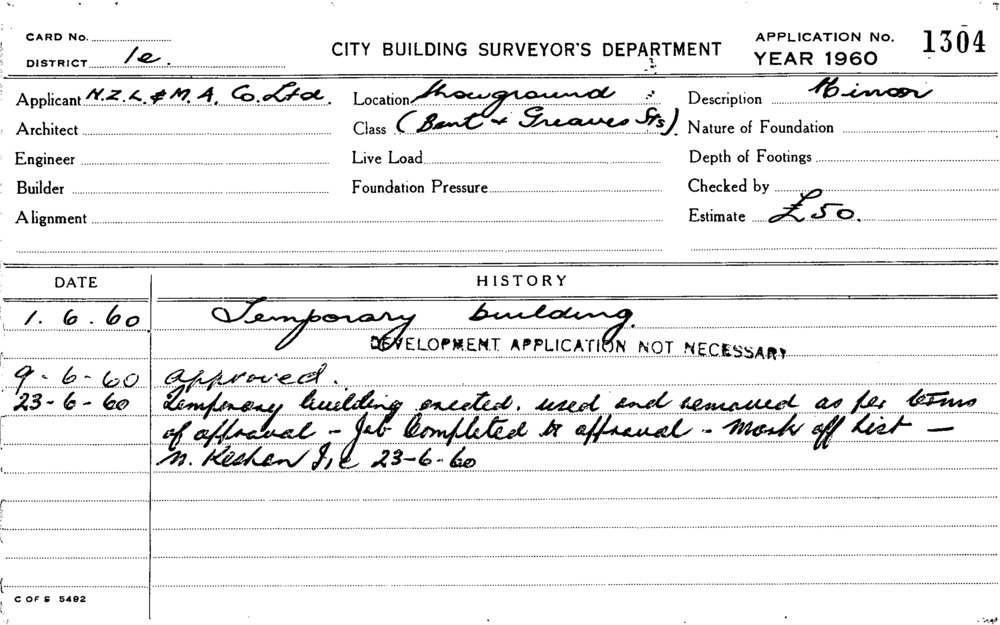 CARD No.
DISTRICT 1e.
CITY BUILDING SURVEYOR'S DEPARTMENT
APPLICATION No. 1304
YEAR 1960
Applicant N.Z.L. & M.A. Co. Ltd.
Architect
Engineer
Builder
Alignment
Location Showground
Class (Bent & Greaves Sts)
Live Load
Foundation Pressure
Description Minor
Nature of Foundation
Depth of Footings
Checked by
Estimate £50.
DATE HISTORY
1. 6. 60 Temporary building.
DEVELOPMENT APPLICATION NOT NECESSARY
9-6-60 approved.
23-6-60 Temporary building erected, used and removed as per terms
of approval - Job Completed to approval - Mark off List -
23-6-60
C OF S 5492